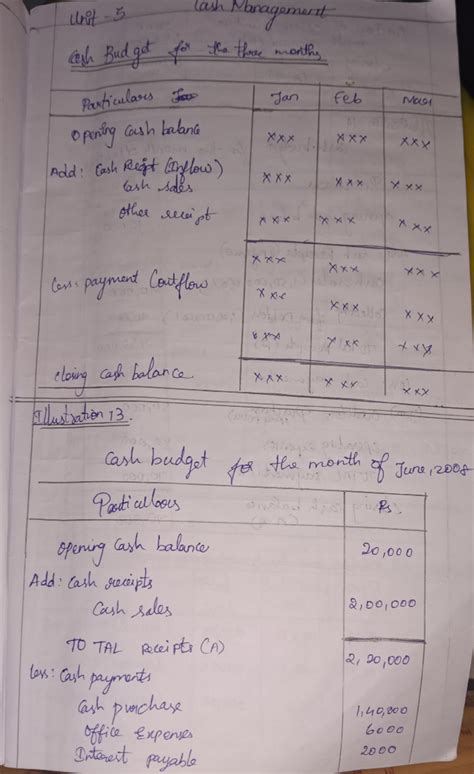 Unit - 5 Cash Management
Cash Budget for the three months
Particulars Jan Feb Mar
Opening cash balance xxx xxx xxx
Add: Cash Reipt (Inflow)
Cash sales xxx xxx xxx
other receipt xxx xxx xxx
xxx xxx xxx
Less: payment Coutflow xxx xxx xxx
xxx xxx xxx
closing cash balance xxx xxx xxx
Illustration 13.
Cash budget for the month of June, 2008
Particulars Rs.
opening Cash balance 20,000
Add: Cash receipts
Cash sales 2,00,000
TOTAL Receipts (A) 2,20,000
Less: Cash payments
Cash purchase 1,40,000
Office Expenses 6000
Interest payable 2000